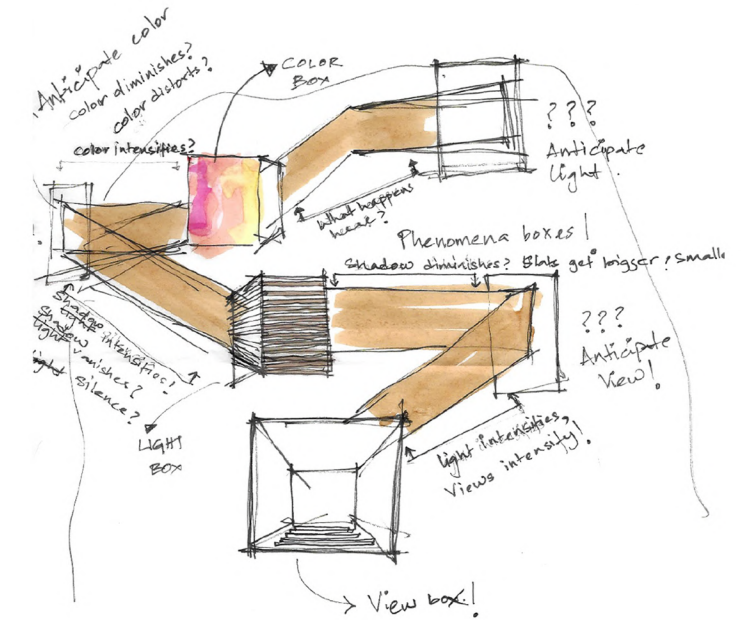 Anticipate color
color diminishes?
color distorts?
color intensities?
COLOR
BOX
???
Anticipate
light.
What happens
hear?
Phenomena boxes!
Shadow diminishes? Slats get bigger? Smalle
???
Anticipate
View!
Shadow
light intensities!
Shadow
light vanishes?
light silence?
LIGHT
BOX
light intensities,
Views intensify!
View box!